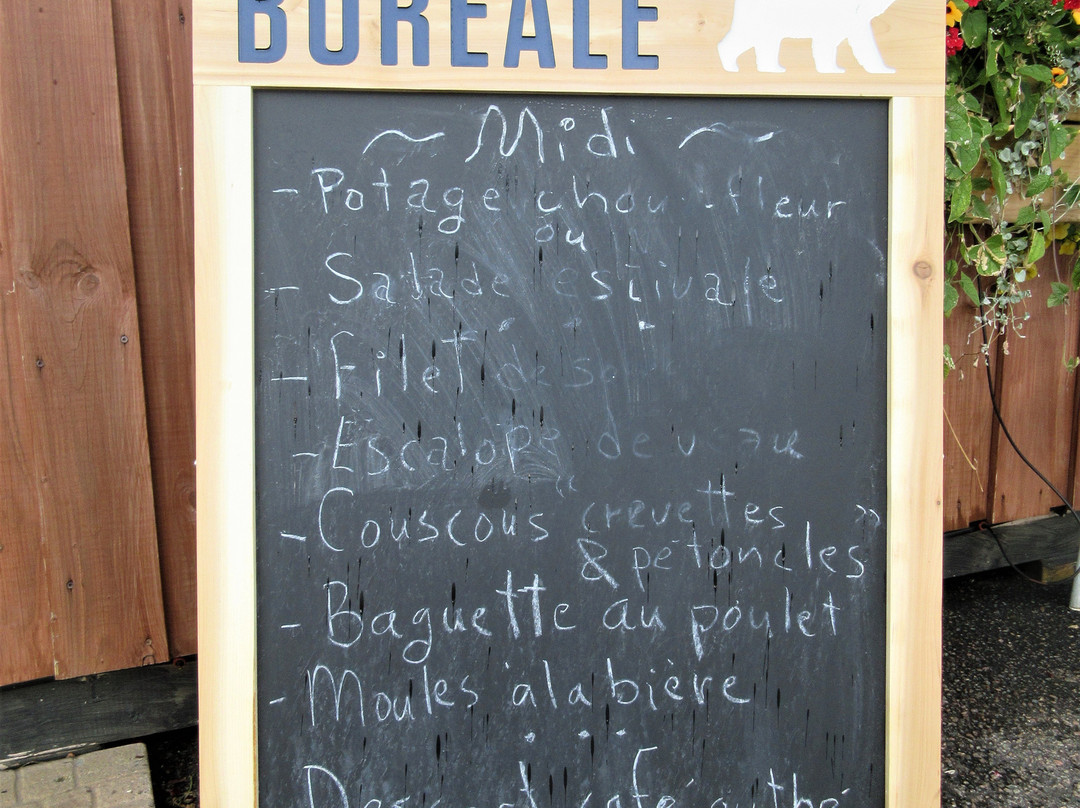 BORÉALE
~ Midi ~
- Potage chou-fleur
ou
- Salade estivale
- Filet de
- Escalope de veau
- Couscous "crevettes
& pétoncles"
- Baguette au poulet
- Moules à la bière
Dessert, café ou thé